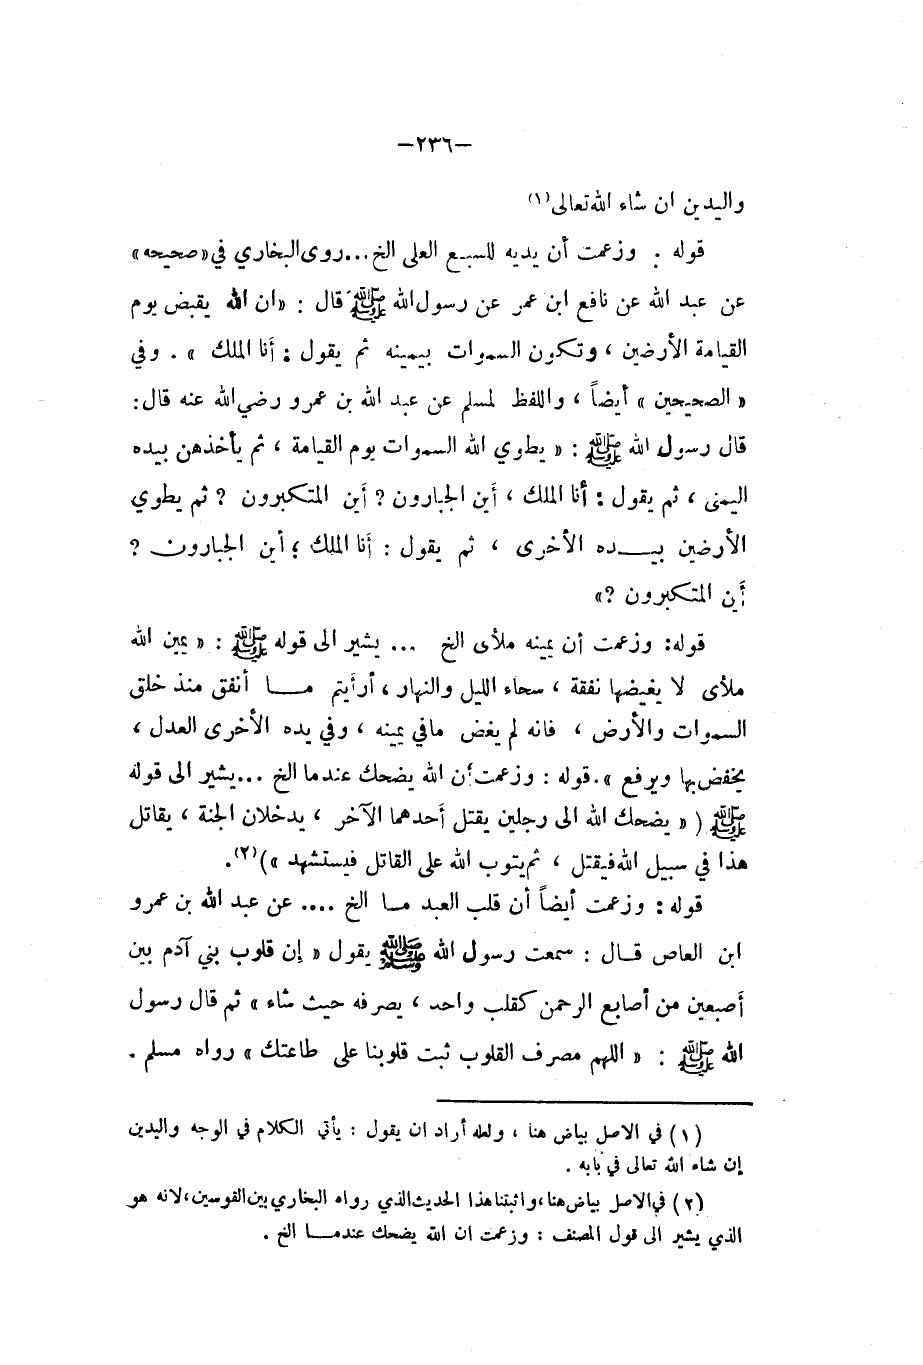 —٢٣٦—
واليدين ان شاء الله تعالى(١)
قوله : وزعمت أن يديه للسبع العلى الخ...روى البخاري في «صحيحه»
عن عبد الله عن نافع ابن عمر عن رسول الله ﷺ قال : «ان الله يقبض يوم
القيامة الأرضين ، وتكون السموات بيمينه ثم يقول : أنا الملك » . وفي
« الصحيحين » أيضاً ، واللفظ لمسلم عن عبد الله بن عمرو رضي الله عنه قال:
قال رسول الله ﷺ : « يطوي الله السموات يوم القيامة ، ثم يأخذهن بيده
اليمنى ، ثم يقول : أنا الملك ، أين الجبارون ? أين المتكبرون ? ثم يطوي
الأرضين بيـــده الأخرى ، ثم يقول : أنا الملك ؛ أين الجبارون ?
أين المتكبرون ?»
قوله: وزعمت أن يمينه ملأى الخ ... يشير الى قوله ﷺ : « يمين الله
ملأى لا يغيضها نفقة ، سحاء الليل والنهار ، أرأيتم مـــا أنفق منذ خلق
السموات والأرض ، فانه لم يغض مافي يمينه ، وفي يده الأخرى العدل ،
يخفض بها ويرفع ».قوله : وزعمت أن الله يضحك عندما الخ ...يشير الى قوله
ﷺ ( « يضحك الله الى رجلين يقتل أحدهما الآخر ، يدخلان الجنة ، يقاتل
هذا في سبيل الله فيقتل ، ثم يتوب الله على القاتل فيستشهد »)(٢).
قوله : وزعمت أيضاً أن قلب العبد مـا الخ .... عن عبد الله بن عمرو
ابن العاص قـال : سمعت رسول الله ﷺ يقول « إن قلوب بني آدم بين
أصبعين من أصابع الرحمن كقلب واحد ، يصرفه حيث شاء » ثم قال رسول
الله ﷺ : « اللهم مصرف القلوب ثبت قلوبنا على طاعتك » رواه مسلم .
(١) في الاصل بياض هنا ، ولعله أراد ان يقول : يأتي الكلام في الوجه واليدين
إن شاء الله تعالى في بابه .
(٢) في الاصل بياض هنا، واثبتنا هذا الحديث الذي رواه البخاري بين القوسين، لانه هو
الذي يشير الى قول المصنف : وزعمت ان الله يضحك عندمـــا الخ .